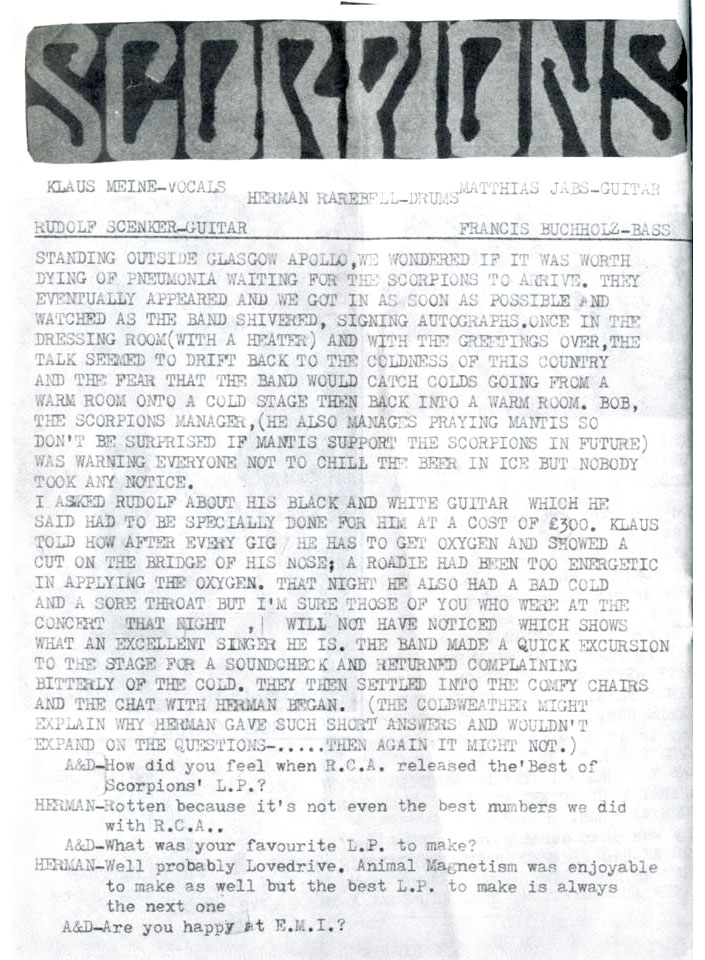 SCORPIONS
KLAUS MEINE-VOCALS HERMAN RAREBELL-DRUMS MATTHIAS JABS-GUITAR
RUDOLF SCENKER-GUITAR FRANCIS BUCHHOLZ-BASS
STANDING OUTSIDE GLASGOW APOLLO,WE WONDERED IF IT WAS WORTH
DYING OF PNEUMONIA WAITING FOR THE SCORPIONS TO ARRIVE. THEY
EVENTUALLY APPEARED AND WE GOT IN AS SOON AS POSSIBLE AND
WATCHED AS THE BAND SHIVERED, SIGNING AUTOGRAPHS.ONCE IN THE
DRESSING ROOM(WITH A HEATER) AND WITH THE GREETINGS OVER,THE
TALK SEEMED TO DRIFT BACK TO THE COLDNESS OF THIS COUNTRY
AND THE FEAR THAT THE BAND WOULD CATCH COLDS GOING FROM A
WARM ROOM ONTO A COLD STAGE THEN BACK INTO A WARM ROOM. BOB,
THE SCORPIONS MANAGER,(HE ALSO MANAGES PRAYING MANTIS SO
DON'T BE SURPRISED IF MANTIS SUPPORT THE SCORPIONS IN FUTURE)
WAS WARNING EVERYONE NOT TO CHILL THE BEER IN ICE BUT NOBODY
TOOK ANY NOTICE.
I ASKED RUDOLF ABOUT HIS BLACK AND WHITE GUITAR WHICH HE
SAID HAD TO BE SPECIALLY DONE FOR HIM AT A COST OF £300. KLAUS
TOLD HOW AFTER EVERY GIG HE HAS TO GET OXYGEN AND SHOWED A
CUT ON THE BRIDGE OF HIS NOSE; A ROADIE HAD BEEN TOO ENERGETIC
IN APPLYING THE OXYGEN. THAT NIGHT HE ALSO HAD A BAD COLD
AND A SORE THROAT BUT I'M SURE THOSE OF YOU WHO WERE AT THE
CONCERT THAT NIGHT , WILL NOT HAVE NOTICED WHICH SHOWS
WHAT AN EXCELLENT SINGER HE IS. THE BAND MADE A QUICK EXCURSION
TO THE STAGE FOR A SOUNDCHECK AND RETURNED COMPLAINING
BITTERLY OF THE COLD. THEY THEN SETTLED INTO THE COMFY CHAIRS
AND THE CHAT WITH HERMAN BEGAN. (THE COLDWEATHER MIGHT
EXPLAIN WHY HERMAN GAVE SUCH SHORT ANSWERS AND WOULDN'T
EXPAND ON THE QUESTIONS-.....THEN AGAIN IT MIGHT NOT.)
A&D-How did you feel when R.C.A. released the'Best of
Scorpions' L.P.?
HERMAN-Rotten because it's not even the best numbers we did
with R.C.A..
A&D-What was your favourite L.P. to make?
HERMAN-Well probably Lovedrive. Animal Magnetism was enjoyable
to make as well but the best L.P. to make is always
the next one
A&D-Are you happy at E.M.I.?